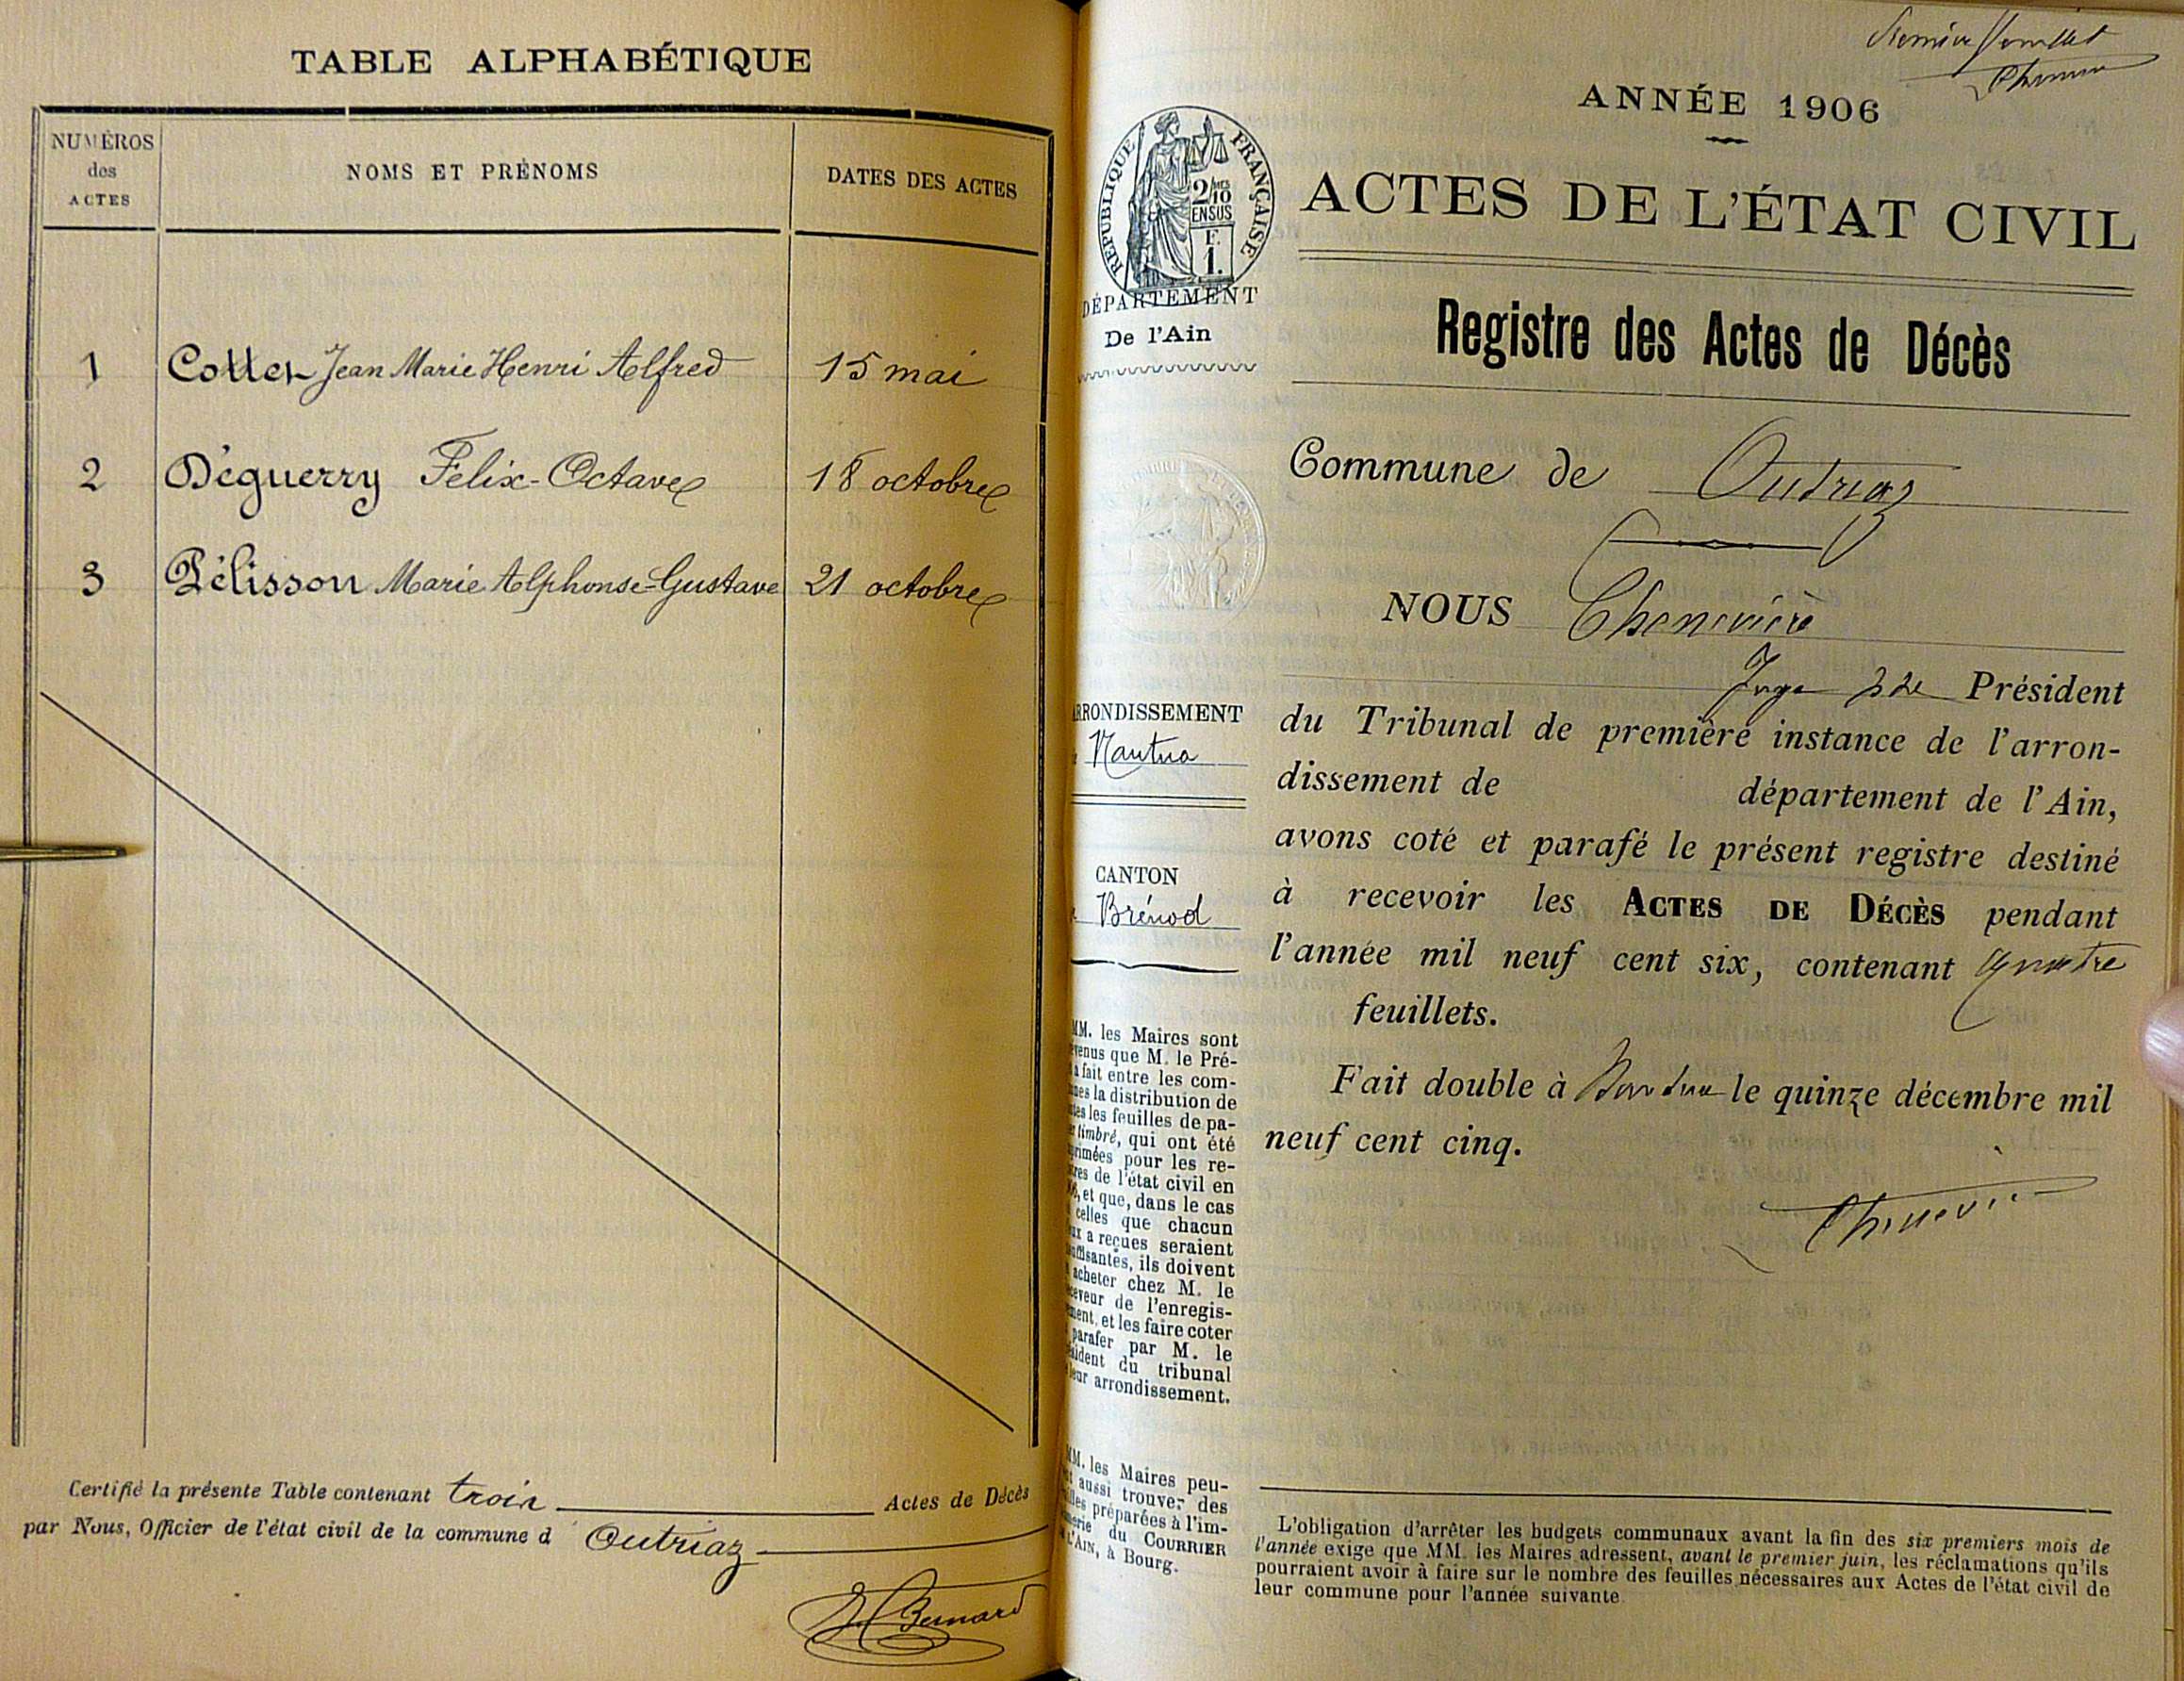 TABLE ALPHABÉTIQUE
NUMÉROS
des
ACTES
NOMS ET PRÉNOMS
DATES DES ACTES
1 Cottet Jean Marie Henri Alfred 15 mai
2 Déguerry Félix-Octave 18 octobre
3 Pélisson Marie Alphonse-Gustave 21 octobre
Certifié la présente Table contenant trois Actes de Décès
par Nous, Officier de l'état civil de la commune d Outriaz
Bernard
Premier feuillet
ANNÉE 1906
ACTES DE L'ÉTAT CIVIL
RÉPUBLIQUE FRANÇAISE
2/10
EN SUS
F.
1.
DÉPARTEMENT
De l'Ain
Registre des Actes de Décès
Commune de Outriaz
NOUS Chenevière
Juge Président
du Tribunal de première instance de l'arron-
dissement de département de l'Ain,
avons coté et parafé le présent registre destiné
à recevoir les ACTES DE DÉCÈS pendant
l'année mil neuf cent six, contenant quatre
feuillets.
Fait double à Nantua le quinze décembre mil
neuf cent cinq.
ARRONDISSEMENT
Nantua
CANTON
Brénod
MM. les Maires sont
venus que M. le Pré-
a fait entre les com-
la distribution de
les feuilles de pa-
timbré, qui ont été
primées pour les re-
de l'état civil en
, et que, dans le cas
celles que chacun
a reçues seraient
, ils doivent
acheter chez M. le
de l'enregis-
, et les faire coter
parafer par M. le
du tribunal
arrondissement.
MM. les Maires peu-
aussi trouver des
préparées à l'im-
du COURRIER
L'AIN, à Bourg.
L'obligation d'arrêter les budgets communaux avant la fin des six premiers mois de
l'année exige que MM. les Maires adressent, avant le premier juin, les réclamations qu'ils
pourraient avoir à faire sur le nombre des feuilles nécessaires aux Actes de l'état civil de
leur commune pour l'année suivante